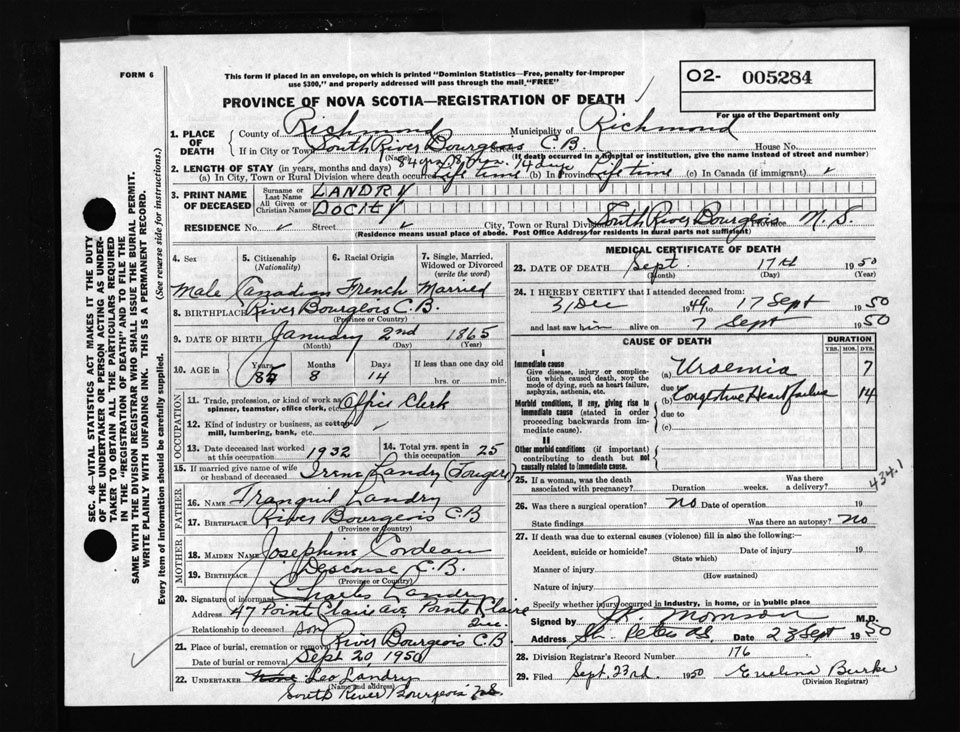 FORM 6
This form if placed in an envelope, on which is printed "Dominion Statistics—Free, penalty for improper
use $300," and properly addressed will pass through the mail "FREE"
O2- 005284
For use of the Department only
PROVINCE OF NOVA SCOTIA—REGISTRATION OF DEATH
1. PLACE OF DEATH County of Richmond Municipality of Richmond
If in City or Town South River Bourgeois C.B. House No.
(Name) (If death occurred in a hospital or institution, give the name instead of street and number)
2. LENGTH OF STAY (in years, months and days)
(a) In City, Town or Rural Division where death occurred Life time (b) In Province Life time (c) In Canada (if immigrant)
3. PRINT NAME OF DECEASED Surname or Last Name LANDRY
All Given or Christian Names DOCITY
RESIDENCE No. Street City, Town or Rural Division South River Bourgeois Province N. S.
(Residence means usual place of abode. Post Office Address for residents in rural parts not sufficient)
4. Sex 5. Citizenship (Nationality) 6. Racial Origin 7. Single, Married, Widowed or Divorced (write the word)
Male Canadian French Married
8. BIRTHPLACE River Bourgeois C.B.
(Province or Country)
9. DATE OF BIRTH January 2nd 1865
(Month) (Day) (Year)
10. AGE in Years 85 Months 8 Days 14 If less than one day old hrs. or min.
OCCUPATION
11. Trade, profession, or kind of work as spinner, teamster, office clerk, etc. Office Clerk
12. Kind of industry or business, as cotton mill, lumbering, bank, etc.
13. Date deceased last worked at this occupation 1932 14. Total yrs. spent in this occupation 25
15. If married give name of wife or husband of deceased Landry (Fougere)
FATHER
16. Name Tranquil Landry
17. Birthplace River Bourgeois C.B.
(Province or Country)
MOTHER
18. Maiden Name Josephine Cordeau
19. Birthplace Descouse C.B.
(Province or Country)
20. Signature of informant Charles Landry
Address 47 Pointe Claire Ave Pointe Claire Que.
Relationship to deceased son
21. Place of burial, cremation or removal River Bourgeois C.B.
Date of burial or removal Sept 20, 1950
22. UNDERTAKER Leo Landry
(Name and address)
South River Bourgeois N.S.
MEDICAL CERTIFICATE OF DEATH
23. DATE OF DEATH Sept. 17th 1950
(Month) (Day) (Year)
24. I HEREBY CERTIFY that I attended deceased from:
31 Dec 1949 17 Sept 1950
and last saw him alive on 7 Sept 1950
CAUSE OF DEATH DURATION
YRS. MOS. DYS.
I
Immediate cause
Give disease, injury or complication which caused death, not the mode of dying, such as heart failure, asphyxia, asthenia, etc.
(a) Uraemia 7
due to
(b) Congestive Heart failure 14
due to
(c)
Morbid conditions, if any, giving rise to immediate cause (stated in order proceeding backwards from immediate cause).
II
Other morbid conditions (if important) contributing to death but not causally related to immediate cause.
434.1
25. If a woman, was the death associated with pregnancy? Duration weeks. Was there a delivery?
26. Was there a surgical operation? No Date of operation 19
State findings Was there an autopsy? No
27. If death was due to external causes (violence) fill in also the following:—
Accident, suicide or homicide? Date of injury 19
(State which)
Manner of injury
(How sustained)
Nature of injury
Specify whether injury occurred in industry, in home, or in public place
Signed by M.D.
Address St. Peters NS. Date 23 Sept 1950
28. Division Registrar's Record Number 176
29. Filed Sept. 23rd. 1950 Evelina Burke
(Division Registrar)
SEC. 46—VITAL STATISTICS ACT MAKES IT THE DUTY
OF THE UNDERTAKER OR PERSON ACTING AS UNDER-
TAKER TO OBTAIN ALL THE PARTICULARS REQUIRED
IN THE "REGISTRATION OF DEATH" AND TO FILE THE
SAME WITH THE DIVISION REGISTRAR WHO SHALL ISSUE THE BURIAL PERMIT.
WRITE PLAINLY WITH UNFADING INK. THIS IS A PERMANENT RECORD.
Every item of information should be carefully supplied. (See reverse side for instructions.)